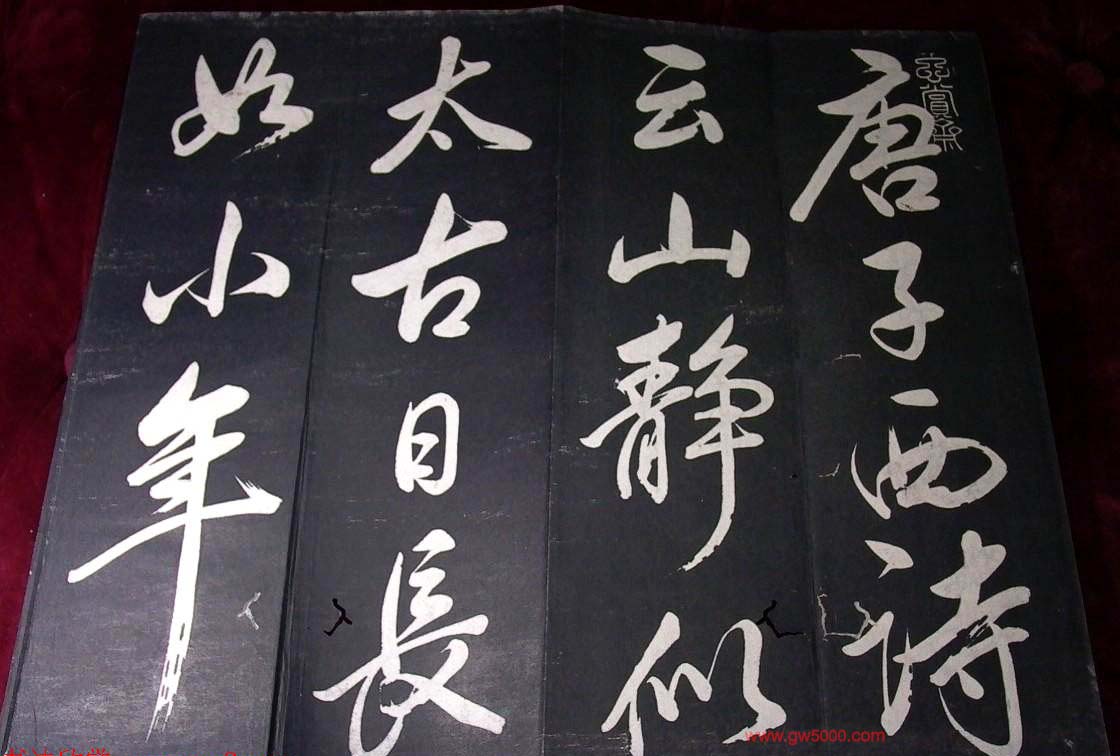 唐子西诗
云山静似
太古日長
如小年
www.gw5000.com